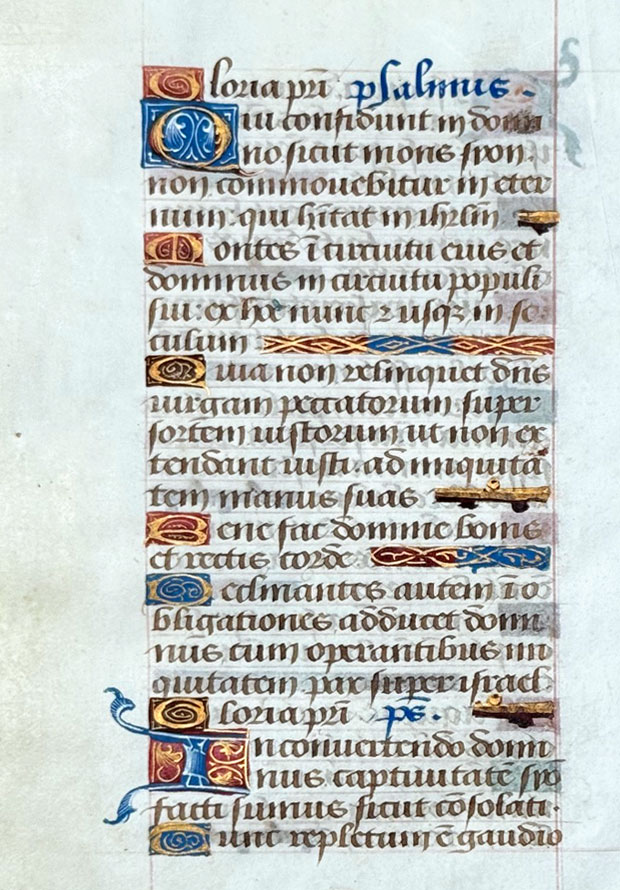 Gloria pr̃i psalmus.
Qui confidunt in domi
no sicut mons syon.
non commouebitur in eter
num: qui hĩtat in ihrl̃m
Montes ĩ circuitu eius et
dominus in circuitu populi
sui: ex hoc nunc ⁊ usqꝫ in se
culum
Quia non relinquet dñs
uirgam peccatorum super
sortem iustorum. ut non ex
tendant iusti. ad iniquitã
tem manus suas
Bene fac domine bonis
et rectis corde
Declinantes autem ĩ o
bligationes adducet domi
nus cum operantibus ini
quitatem pax super israel
Gloria pr̃i pš.
In conuertendo domi
nus captiuitatẽ syõ
facti sumus sicut cõsolati.
Tunc repletum ẽ gaudio